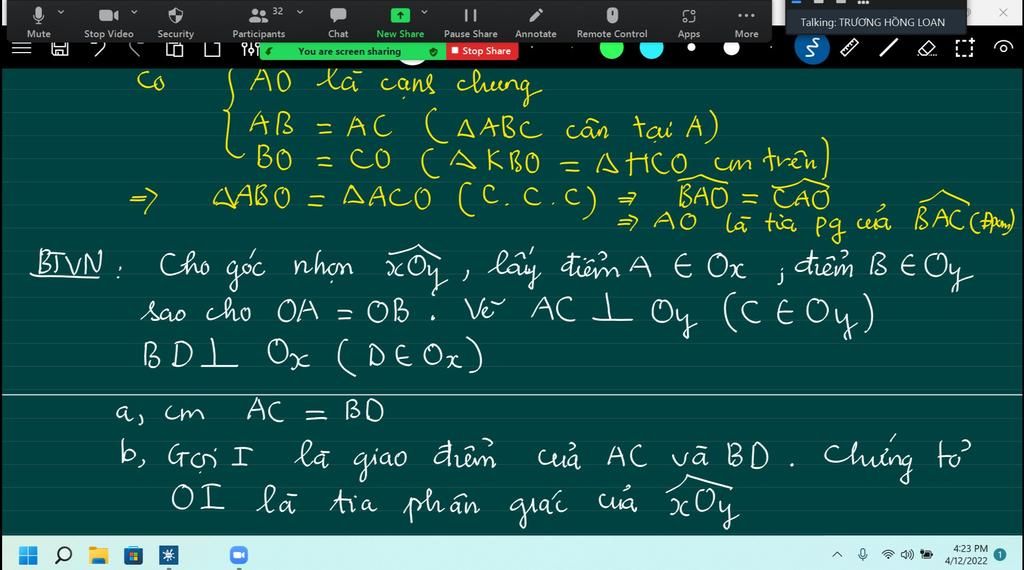 32
Mute
Stop Video
Security
Participants
Chat
New Share
Pause Share
Annotate
Remote Control
Apps
More
Talking: TRƯƠNG HỒNG LOAN
You are screen sharing
Stop Share
Có AO là cạnh chung
AB = AC (ΔABC cân tại A)
BO = CO (ΔKBO = ΔHCO cm trên)
=> ΔABO = ΔACO (C.C.C) => BAO = CAO
=> AO là tia pg của BAC (Đpcm)
BTVN: Cho góc nhọn xOy, lấy điểm A ∈ Ox, điểm B ∈ Oy
sao cho OA = OB. Vẽ AC ⊥ Oy (C ∈ Oy)
BD ⊥ Ox (D ∈ Ox)
a, cm AC = BD
b, Gọi I là giao điểm của AC và BD. Chứng tỏ
OI là tia phân giác của xOy
4:23 PM
4/12/2022
1